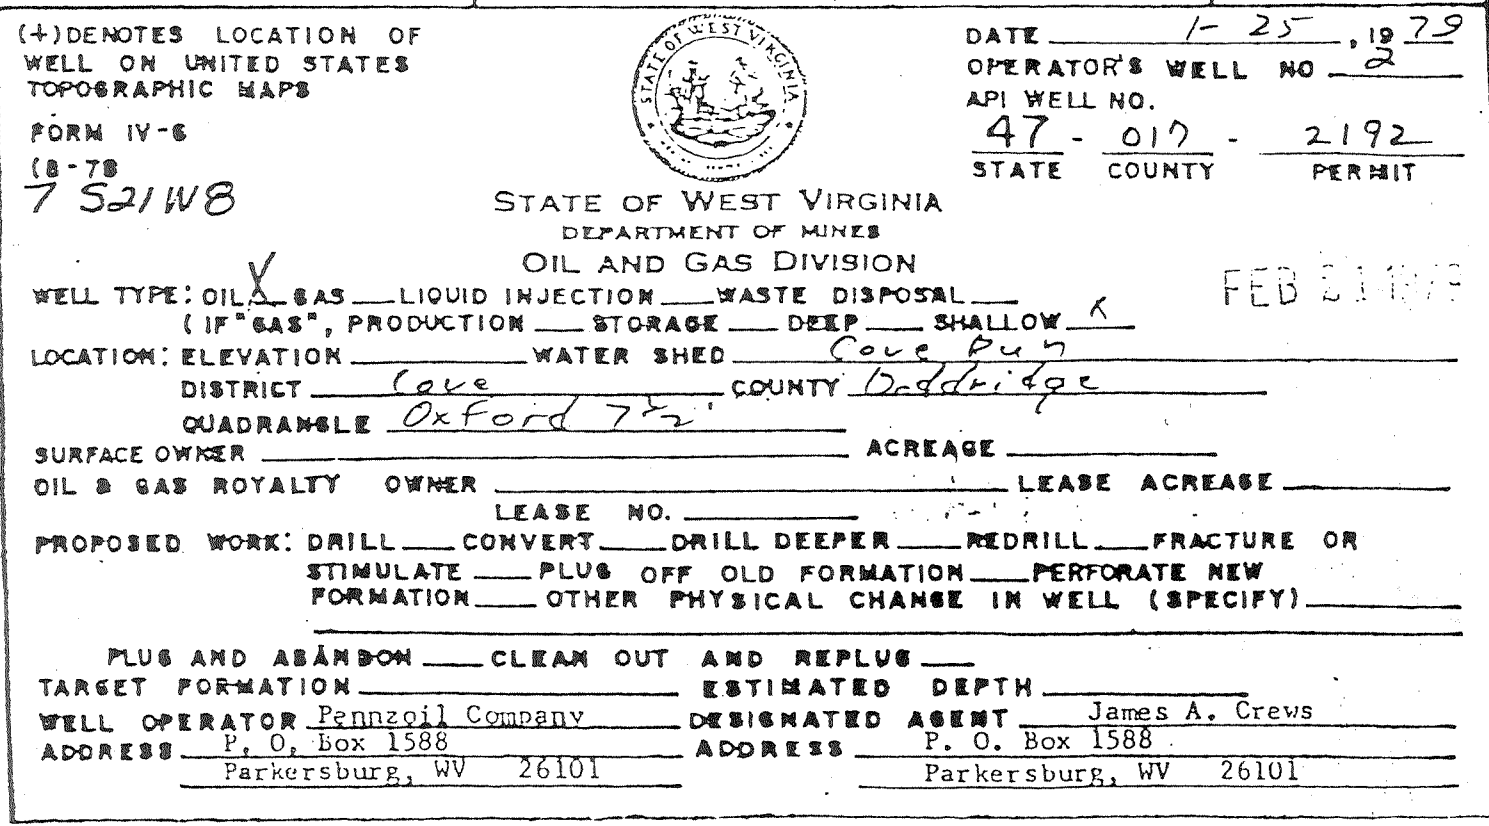 (+) DENOTES LOCATION OF
WELL ON UNITED STATES
TOPOGRAPHIC MAPS
FORM IV-6
(8-78
7 S21W8
STATE OF WEST VIRGINIA
DATE 1-25, 1979
OPERATOR'S WELL NO 2
API WELL NO.
47 - 017 - 2192
STATE COUNTY PERMIT
STATE OF WEST VIRGINIA
DEPARTMENT OF MINES
OIL AND GAS DIVISION
FEB 21 1979
WELL TYPE: OIL X GAS ___ LIQUID INJECTION ___ WASTE DISPOSAL ___
(IF "GAS", PRODUCTION ___ STORAGE ___ DEEP ___ SHALLOW X
LOCATION: ELEVATION ___ WATER SHED Cove Run
DISTRICT Cove COUNTY Doddridge
QUADRANGLE Oxford 7 1/2'
SURFACE OWNER ___ ACREAGE ___
OIL & GAS ROYALTY OWNER ___ LEASE ACREAGE ___
LEASE NO. ___
PROPOSED WORK: DRILL ___ CONVERT ___ DRILL DEEPER ___ REDRILL ___ FRACTURE OR
STIMULATE ___ PLUG OFF OLD FORMATION ___ PERFORATE NEW
FORMATION ___ OTHER PHYSICAL CHANGE IN WELL (SPECIFY) ___
PLUG AND ABANDON ___ CLEAN OUT AND REPLUG ___
TARGET FORMATION ___ ESTIMATED DEPTH ___
WELL OPERATOR Pennzoil Company DESIGNATED AGENT James A. Crews
ADDRESS P. O. Box 1588 ADDRESS P. O. Box 1588
Parkersburg, WV 26101 Parkersburg, WV 26101